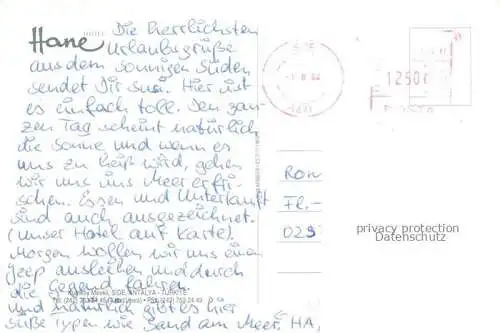 Hane
Die herrlichsten
Urlaubsgrüße
aus dem sonnigen Süden
sendet Dir Susi. Hier ist
es einfach toll. Den gan-
zen Tag scheint natürlich
die Sonne und wenn es
uns zu heiß wird, gehen
wir uns ins Meer erfri-
schen. Essen und Unterkunft
sind auch ausgezeichnet.
(Unser Hotel auf Karte).
Morgen wollen wir uns einen
Jeep ausleihen und durch
die Gegend fahren.
SIDE, ANTALYA - TÜRKİYE
Und natürlich gibt es hier
süße Typen wie Sand am Meer. HA,
12500
Ron
Fl.-
029
privacy protection
Datenschutz